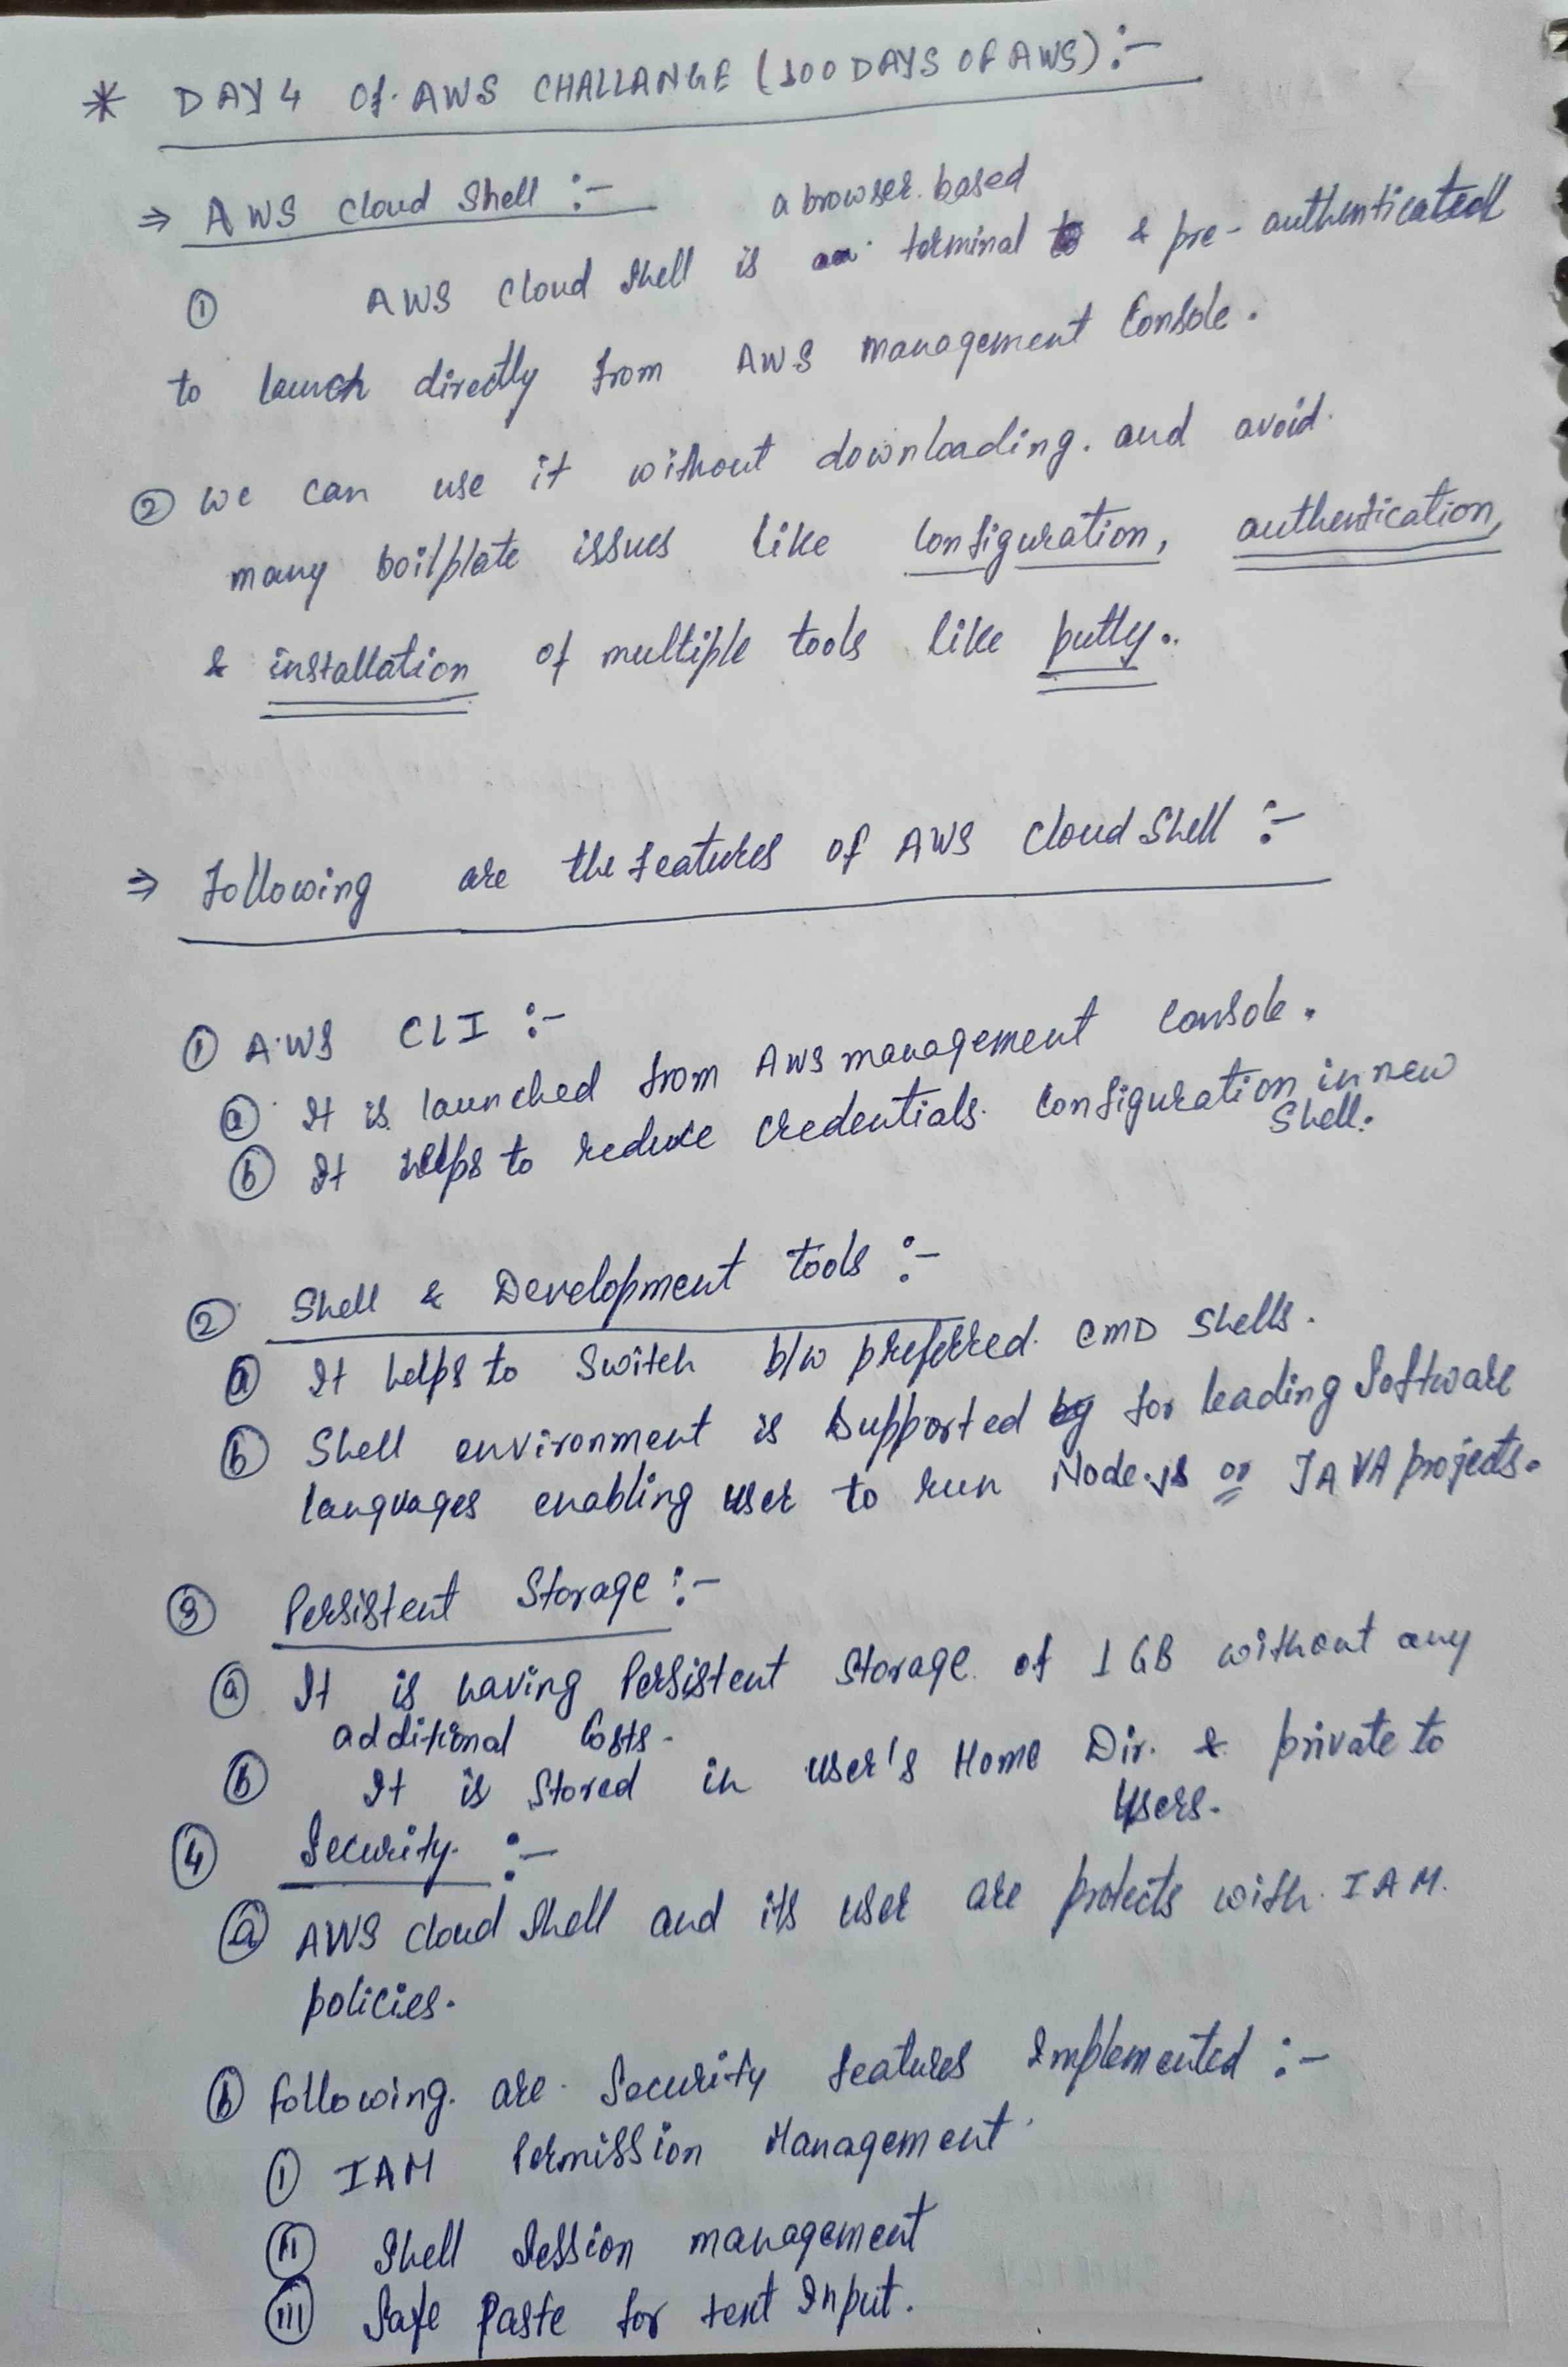 * DAY 4 Of AWS CHALLANGE (100 DAYS OF AWS) :-
⇒ AWS Cloud Shell :-
a browser based
① AWS Cloud Shell is terminal & pre-authenticated
to launch directly from AWS management Console.
② we can use it without downloading. and avoid.
many boilplate issues like Configuration, authentication,
& installation of multiple tools like putty..
⇒ Following are the features of AWS Cloud Shell :-
① AWS CLI :-
ⓐ It is launched from AWS management Console.
ⓑ It helps to reduce credentials. Configuration in new
Shell.
② Shell & Development tools :-
ⓐ It helps to Switch b/w preferred. CMD Shells.
ⓑ Shell environment is Supported for leading Software
languages enabling user to run Node.js or JAVA projects.
③ Persistent Storage :-
ⓐ It is having Persistent Storage of 1 GB without any
additional Costs.
ⓑ It is Stored in user's Home Dir. & private to
Users.
④ Security. :-
ⓐ AWS Cloud Shell and its user are protects with IAM.
policies.
ⓑ following. are Security features Implemented :-
Ⓘ IAM Permission Management
Ⓘⓘ Shell Session management
Ⓘⓘⓘ Safe Paste for text Input.